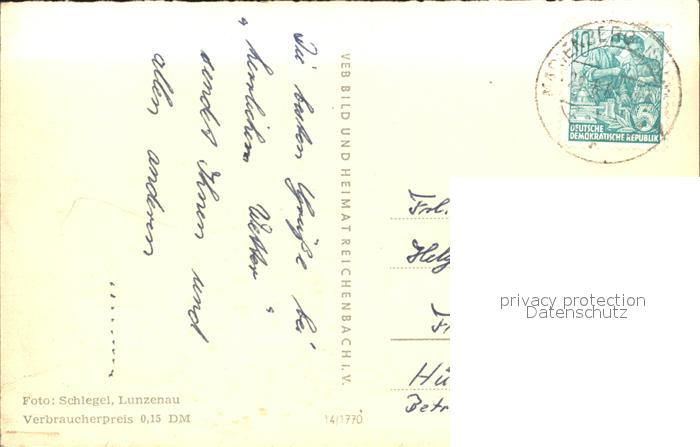 Die besten Grüße bei
"herrlichem Wetter"
sendet Ihnen und
allen anderen
VEB BILD UND HEIMAT REICHENBACH I. V.
MARIENBERG
10
DEUTSCHE
DEMOKRATISCHE REPUBLIK
Frl.
privacy protection
Datenschutz
Foto: Schlegel, Lunzenau
Verbraucherpreis 0,15 DM
14/1770